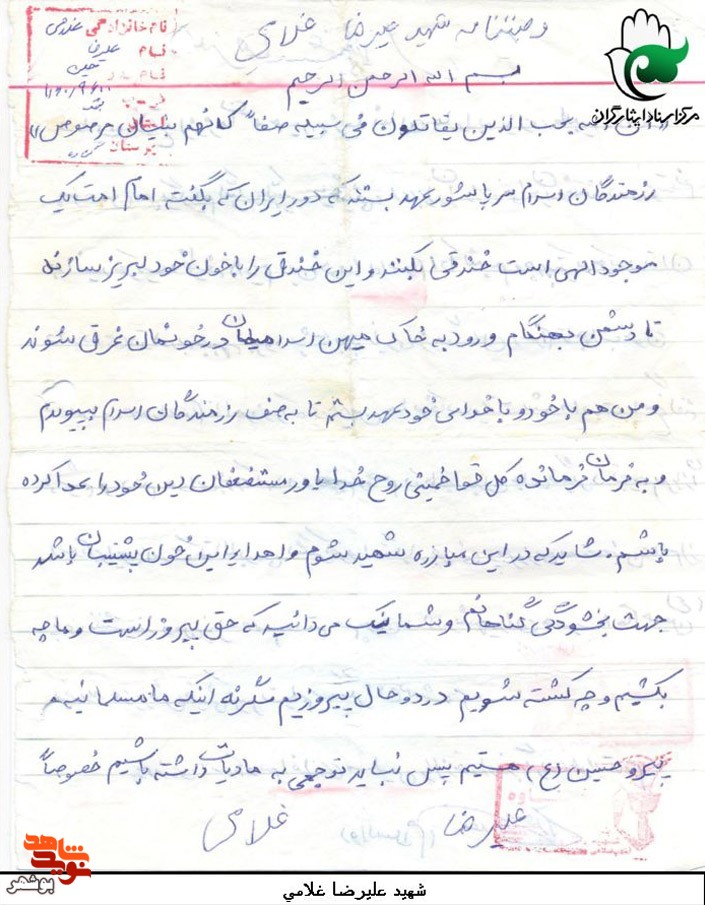 وصیتنامه شهید علیرضا غلامی
بسم الله الرحمن الرحیم
نام خانوادگی غلامی
نام علیرضا
نام پدر
مرکز اسناد ایثارگران
«ان الله یحب الذین یقاتلون فی سبیله صفاً کانهم بنیان مرصوص»
رزمندگان اسلام سرپا شور عهد بستند که دور ایران که بگفته امام امت یک
موجود الهی است خندقی بکنند و این خندق را با خون خود لبریز سازند
تا دشمن بهنگام ورود به خاک میهن اسلامیمان در خونمان غرق شوند
و من هم با خود و با خدای خود عهد بستم تا به صف رزمندگان اسلام بپیوندم
و به فرمان فرمانده کل قوا خمینی روح خدا یاور مستضعفان دین خود را ادا کرده
باشم. شاید که در این مبارزه شهید شوم و اهدا این خون پشتیبان باشد
جهت بخشودگی گناهانم و شما نیک می دانید که حق پیروز است و ما چه
بکشیم و چه کشته شویم در دو حال پیروزیم مگر نه اینکه ما مسلمانیم
پیرو حسین (ع) هستیم پس نباید توجهی به مادیات داشته باشیم خصوصاً
علیرضا غلامی
نوید شاهد
بوشهر
شهید علیرضا غلامي